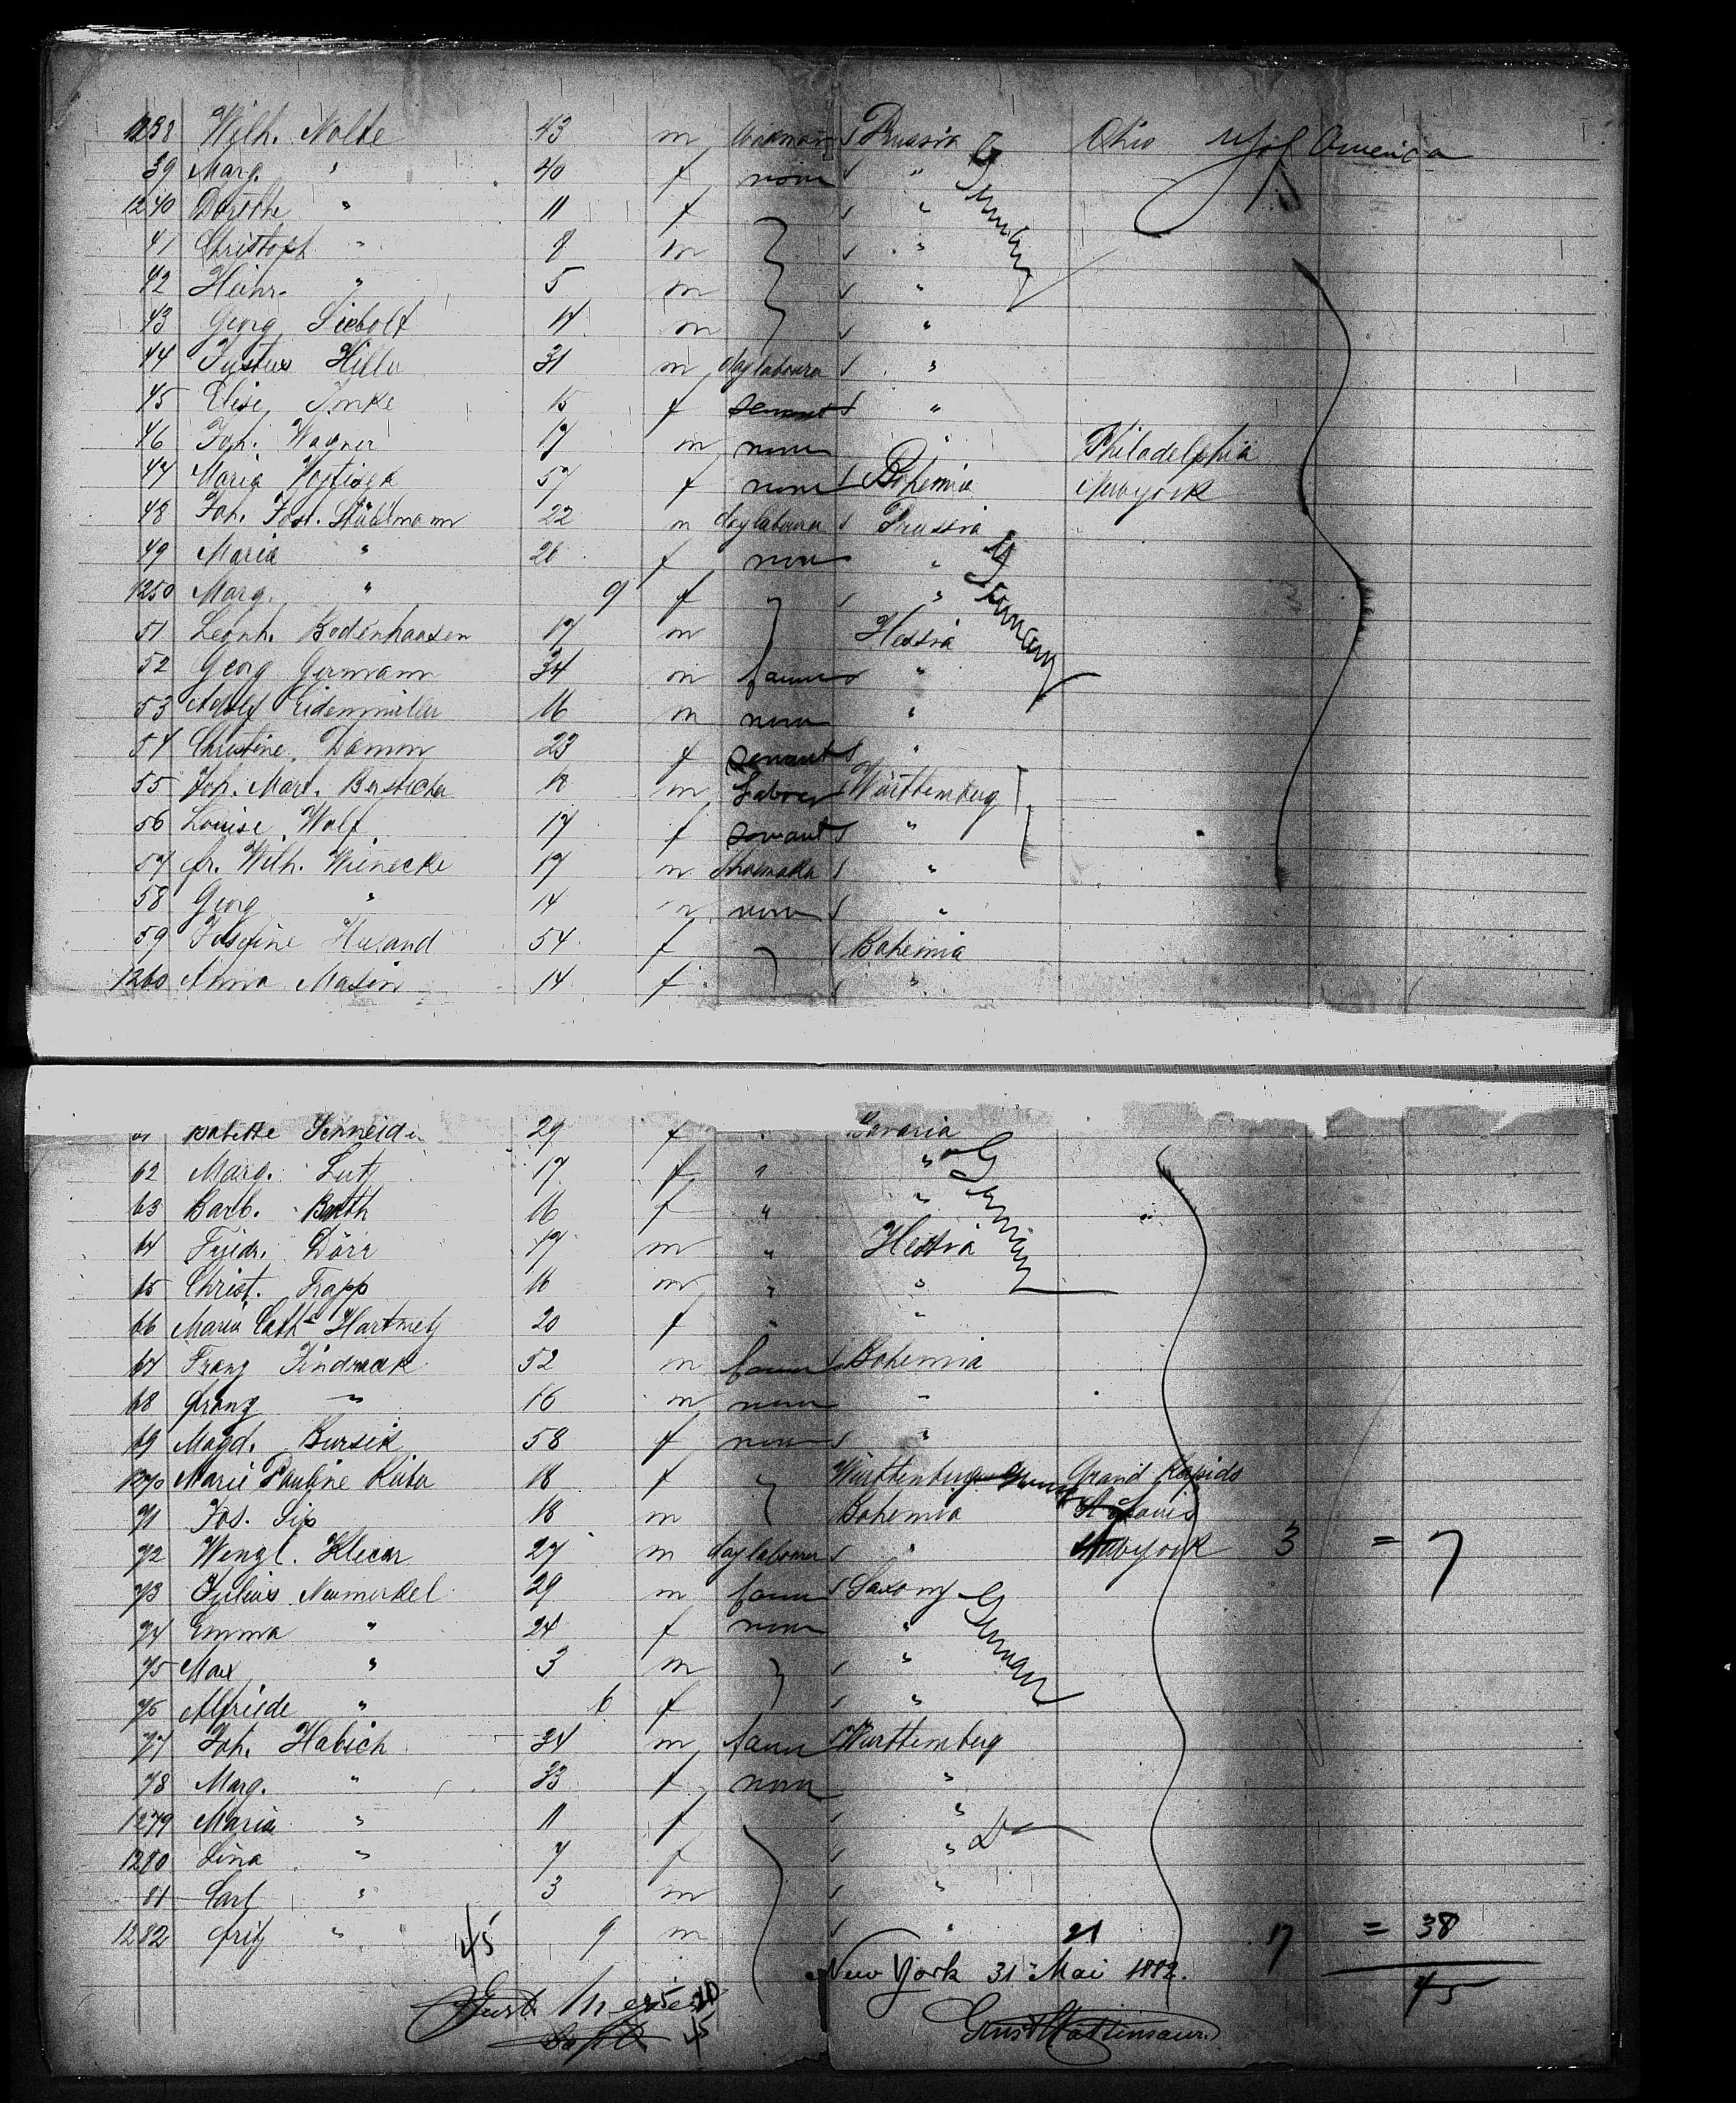 1238 Wilh. Nolte 43 m workman Prussia Ohio U S of America
39 Marg. " 40 f none "
1240 Dorothe " 11 f "
41 Christoph " 8 m "
42 Heinr. " 5 m "
43 Georg Siebolt 14 m "
44 Justus 31 m daylabourer "
45 Elise Imke 15 f servant "
46 Joh. Wagner 17 m none " Philadelphia
47 Maria Vojtisek 57 f none Bohemia Newyork
48 Joh. Jost. Stühlmann 22 m daylabourer Prussia
49 Maria " 26 f none "
1250 Marg. " 9 f "
51 Leonh. Bodenhausen 17 m Hessia
52 Georg Germann 34 m farmer "
53 Adolf Eidenmüller 16 m none "
54 Christine Damm 23 f servant "
55 Joh. Mart. 18 m Württemberg
56 Louise Wolf 17 f servant "
57 Fr. Wilh. Wienecke 17 m "
58 Georg " 14 m none "
59 Josefine 54 f Bohemia
1260 Anna Masin 14 f "
61 Babette Schneider 29 f " Bavaria
62 Marg. Lutz 17 f " "
63 Barb. Barth 16 f " "
64 Friedr. Dörr 17 m " Hessia
65 Christ. Trapp 16 m " "
66 Maria Cath. Hartmetz 20 f " "
67 Franz Jindracek 52 m farmer Bohemia
68 Franz " 16 m none "
69 Magd. Bursik 58 f none "
1270 Marie Pauline 18 f Württemberg Germany Grand Rapids
71 Jos. Sip 18 m Bohemia St Louis
72 Wenzl. Klecar 27 m daylabourer " Newyork 3 = 7
73 Julius Neumerkel 29 m farmer Saxony
74 Emma " 24 f none "
75 Max " 3 m "
76 Alfriede " 6 f "
77 Joh. Habich 34 m farmer Württemberg
78 Marg. " 33 f none "
1279 Maria " 11 f "
1280 Lina " 7 f "
81 Carl " 3 m "
1282 Fritz " 9 m " 21 17 = 38
45
New York 31 Mai 1882.
45
Germany
Germany
Germany
German